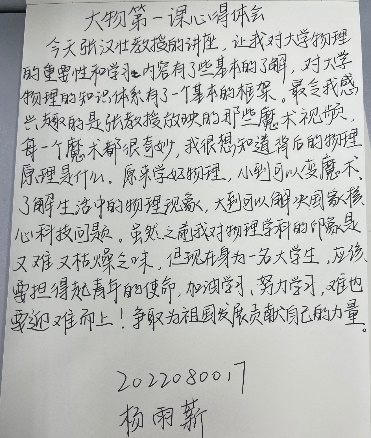 大物第一课心得体会
今天张汉壮教授的讲座,让我对大学物理
的重要性和学习内容有了些基本的了解,对大学
物理的知识体系有了一个基本的框架。最令我感
兴趣的是张教授放映的那些魔术视频,
每一个魔术都很奇妙,我很想知道背后的物理
原理是什么。原来学好物理,小到可以变魔术、
了解生活中的物理现象,大到可以解决国家核
心科技问题。虽然之前我对物理学科的印象是
又难又枯燥乏味,但现在身为一名大学生,应该
要担得起青年的使命,加油学习,努力学习,难也
要迎难而上!争取为祖国发展贡献自己的力量。
2022080017
杨雨薪